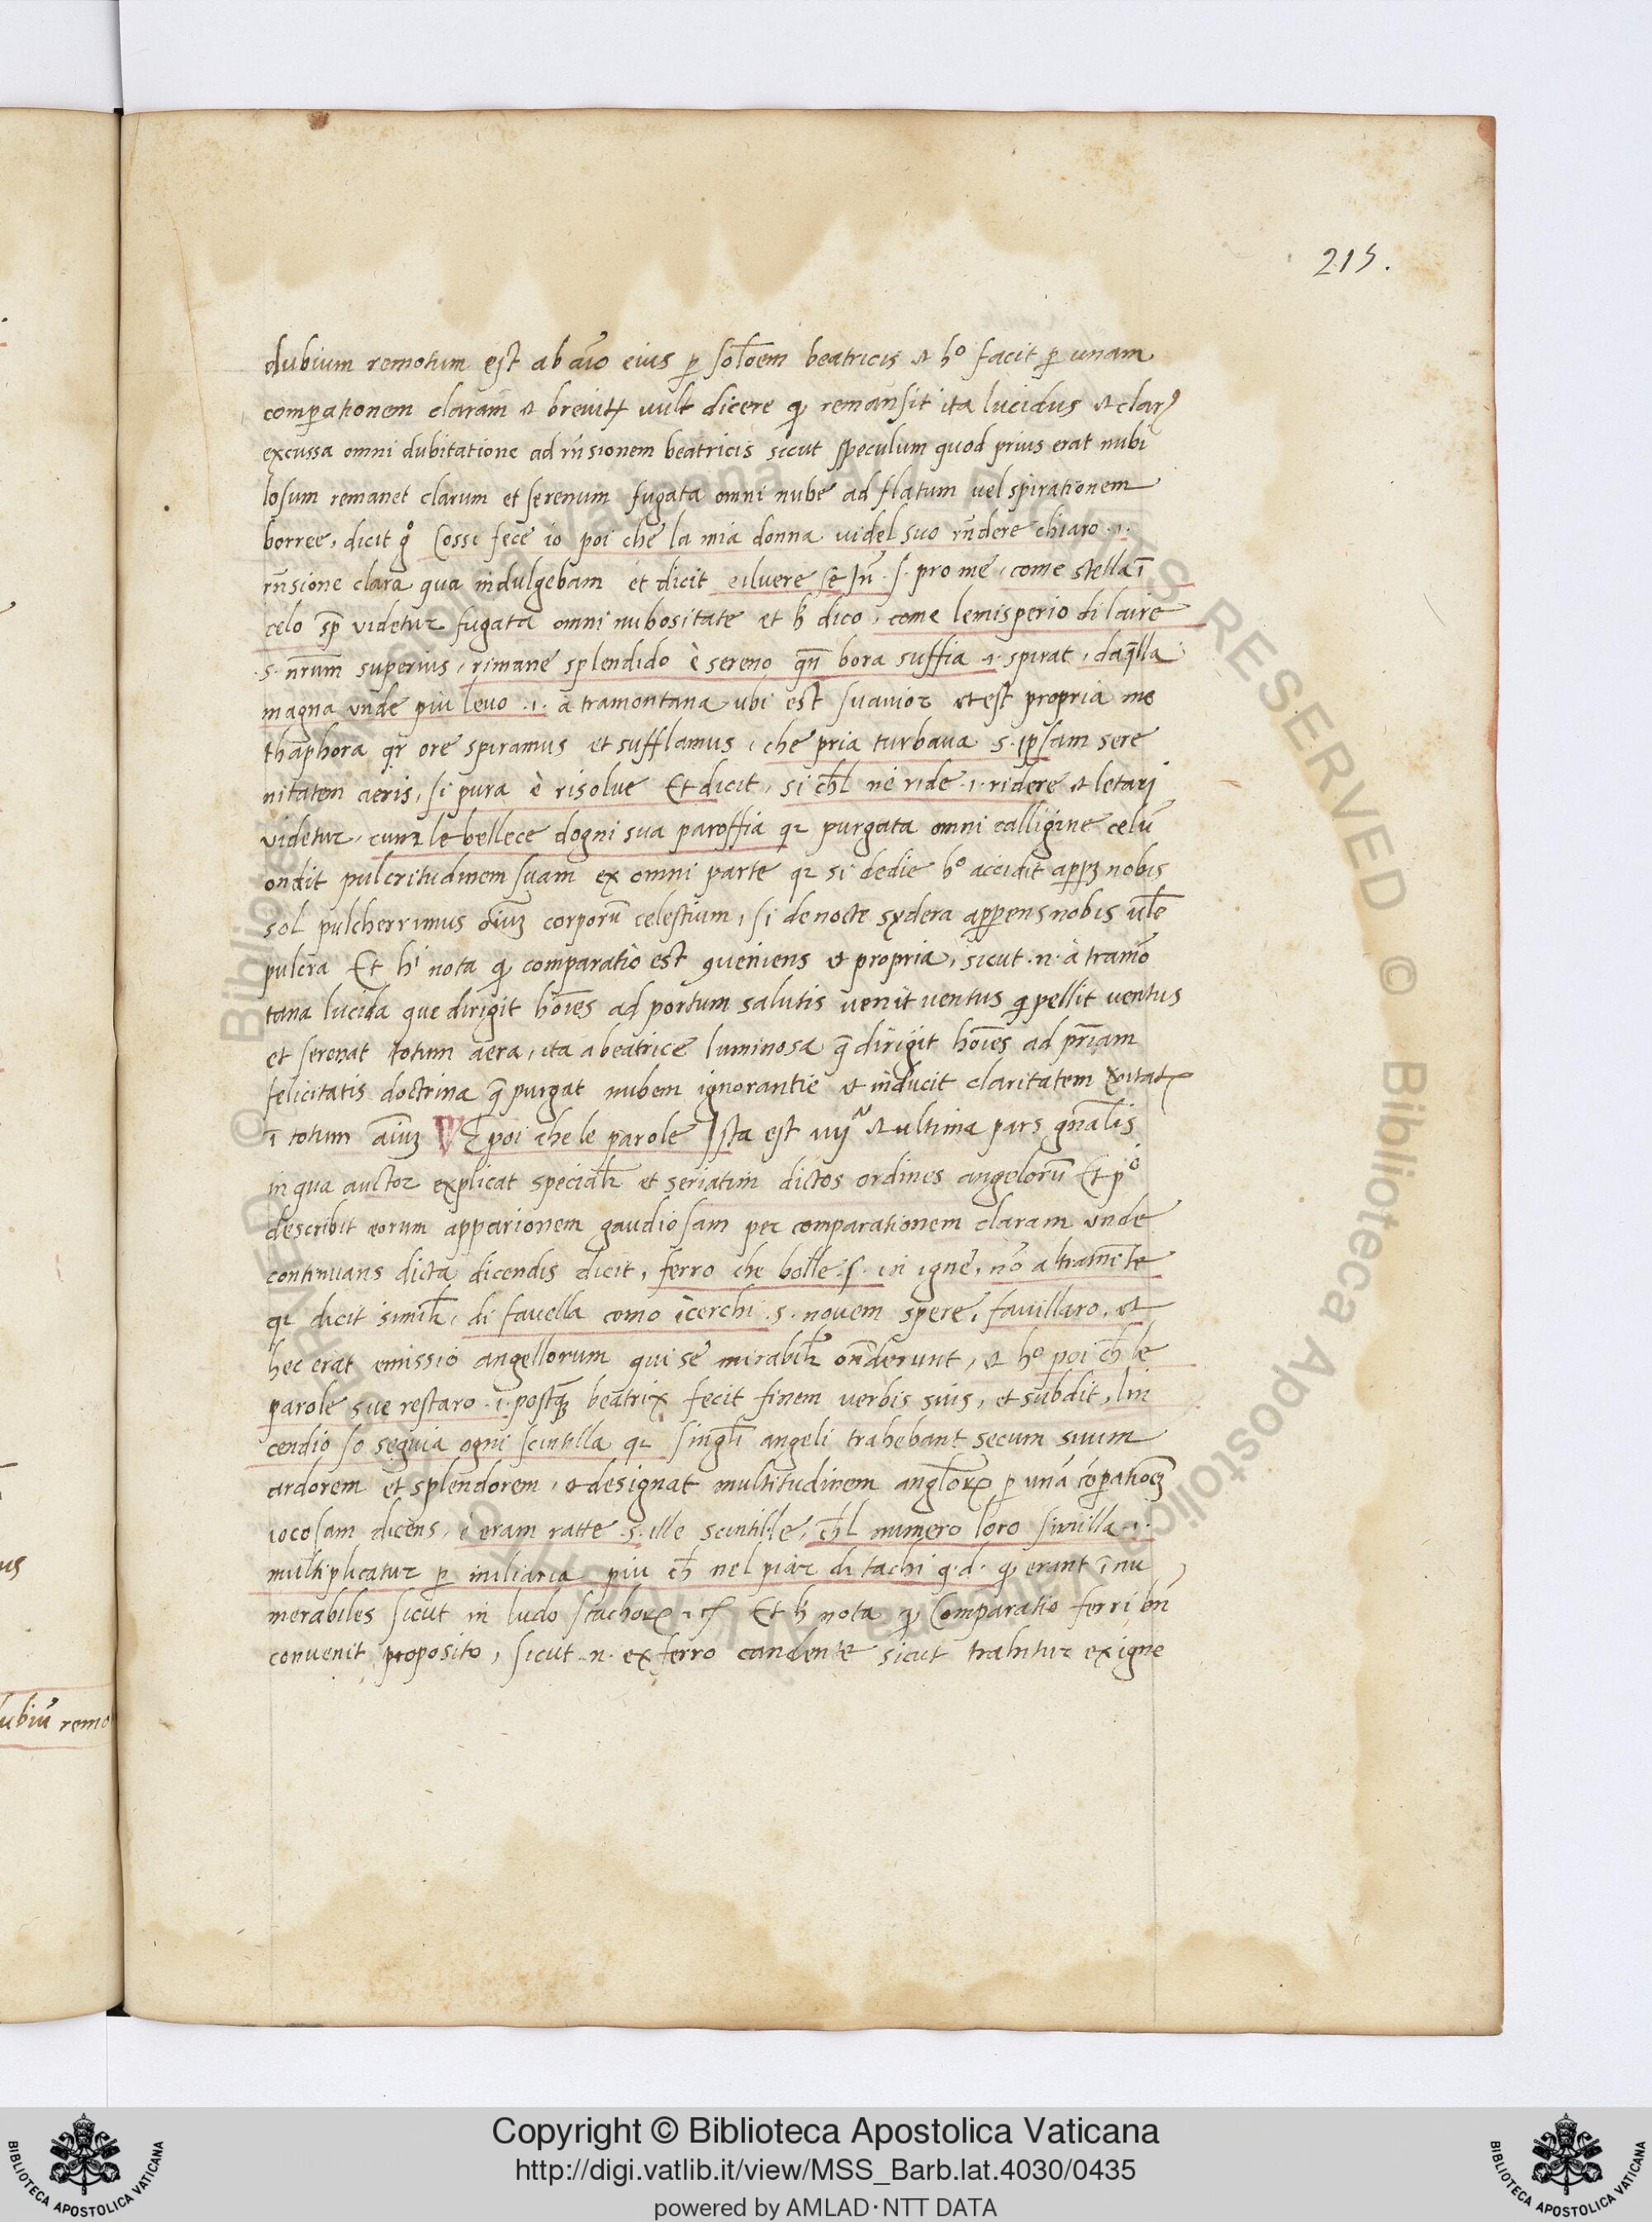 215.
dubium remotum est ab aīo eius p̱ solōem beatricis et hº facit p̱ unam
comp̱ationem claram et breuitꝛ uult dicere ꝙ remansit ita lucidus et clarꝰ
excussa omni dubitatione ad rn̄sionem beatricis sicut speculum quod prius erat nubi
losum remanet clarum et serenum fugata omni nube ad flatum uel spirationem
borree, dicit gº Cossi fece io poi che la mia donna videl suo rn̄dere chiaro .i.
rn̄sione clara qua indulgebam et dicit eiluere se .s. pro me, come stella ī
celo sp̄ videtur fugata omni nubositate et h̄ dico, come lemisperio di laire
.s. nr̄um superius, rimane splendido è sereno qn̄ bora suffia .i. spirat, daq̄lla
magna unde piu leuo .i. a tramontana ubi est suauior et est propria me
thaphora qr ore spiramus et sufflamus, che pria turbaua s. ip̄sam sere
nitatem aeris, si pura è risolue Et dicit, si ch̄l ne ride .i. ridere et letari
videtur, cunꝛ le bellece dogni sua paroffia qꝛ purgata omni calligine celū
ondit pulcritudinem suam ex omni parte qꝛ si dedie hº accidit app̱ꝫ nobis
sol pulcherrimus oīuꝫ corporū celestium, si de nocte sydera app̱ens nobis ul̄e
pulcra Et hⁱ nota ꝙ comparatio est ꝯueniens et propria, sicut .n. à tramō
tana lucida que dirigit hoīes ad portum salutis uenit uentus ꝗ pellit uentus
et serenat totum aera, ita a beatrice luminosa q̄ dirigit hoīes ad pr̄iam
felicitatis doctrina q̄ purgat nubem ignorantie et inducit claritatem
ī totum aīuꝫ E poi che le parole Ista est uijª et ultima pars gn̄alis
in qua auctor explicat specialꝛ et seriatim dictos ordines angelorū Et pº
describit eorum apparionem gaudiosam per comparationem claram unde
continuans dicta dicendis dicit, ferro che bolle .s. in igne, nō altramēte
qꝛ dicit similꝛ, di fauella como icerchi .s. nouem spere, fauillaro, et
hec erat emissio angellorum qui se mirabilꝛ on̄derunt, et hº poi ch̄ le
parole sue restaro .i. postq̄ꝫ beatrix fecit finem verbis suis, et subdit, Lin
cendio so seguia ogni scintilla qꝛ singl̄i angeli trahebant secum suum
ardorem et splendorem, et designat multitudinem angl̄oꝝ p̱ unā cōp̱atioēꝫ
iocosam dicens, e eram ratte .s. ille scintille, ch̄l numero loro sinulla .i.
multiplicatur p̱ miliaria piu ch̄ nel piar di tachi q.d. ꝙ erant īnu
merabiles sicut in ludo stachoꝝ Et h̄ nota ꝙ Comparatio ferri bn̄
conuenit proposito, sicut .n. ex ferro candente sicut trahitur ex igne
ubiū remo
Copyright © Biblioteca Apostolica Vaticana
http://digi.vatlib.it/view/MSS_Barb.lat.4030/0435
powered by AMLAD·NTT DATA
BIBLIOTECA APOSTOLICA VATICANA
BIBLIOTECA APOSTOLICA VATICANA